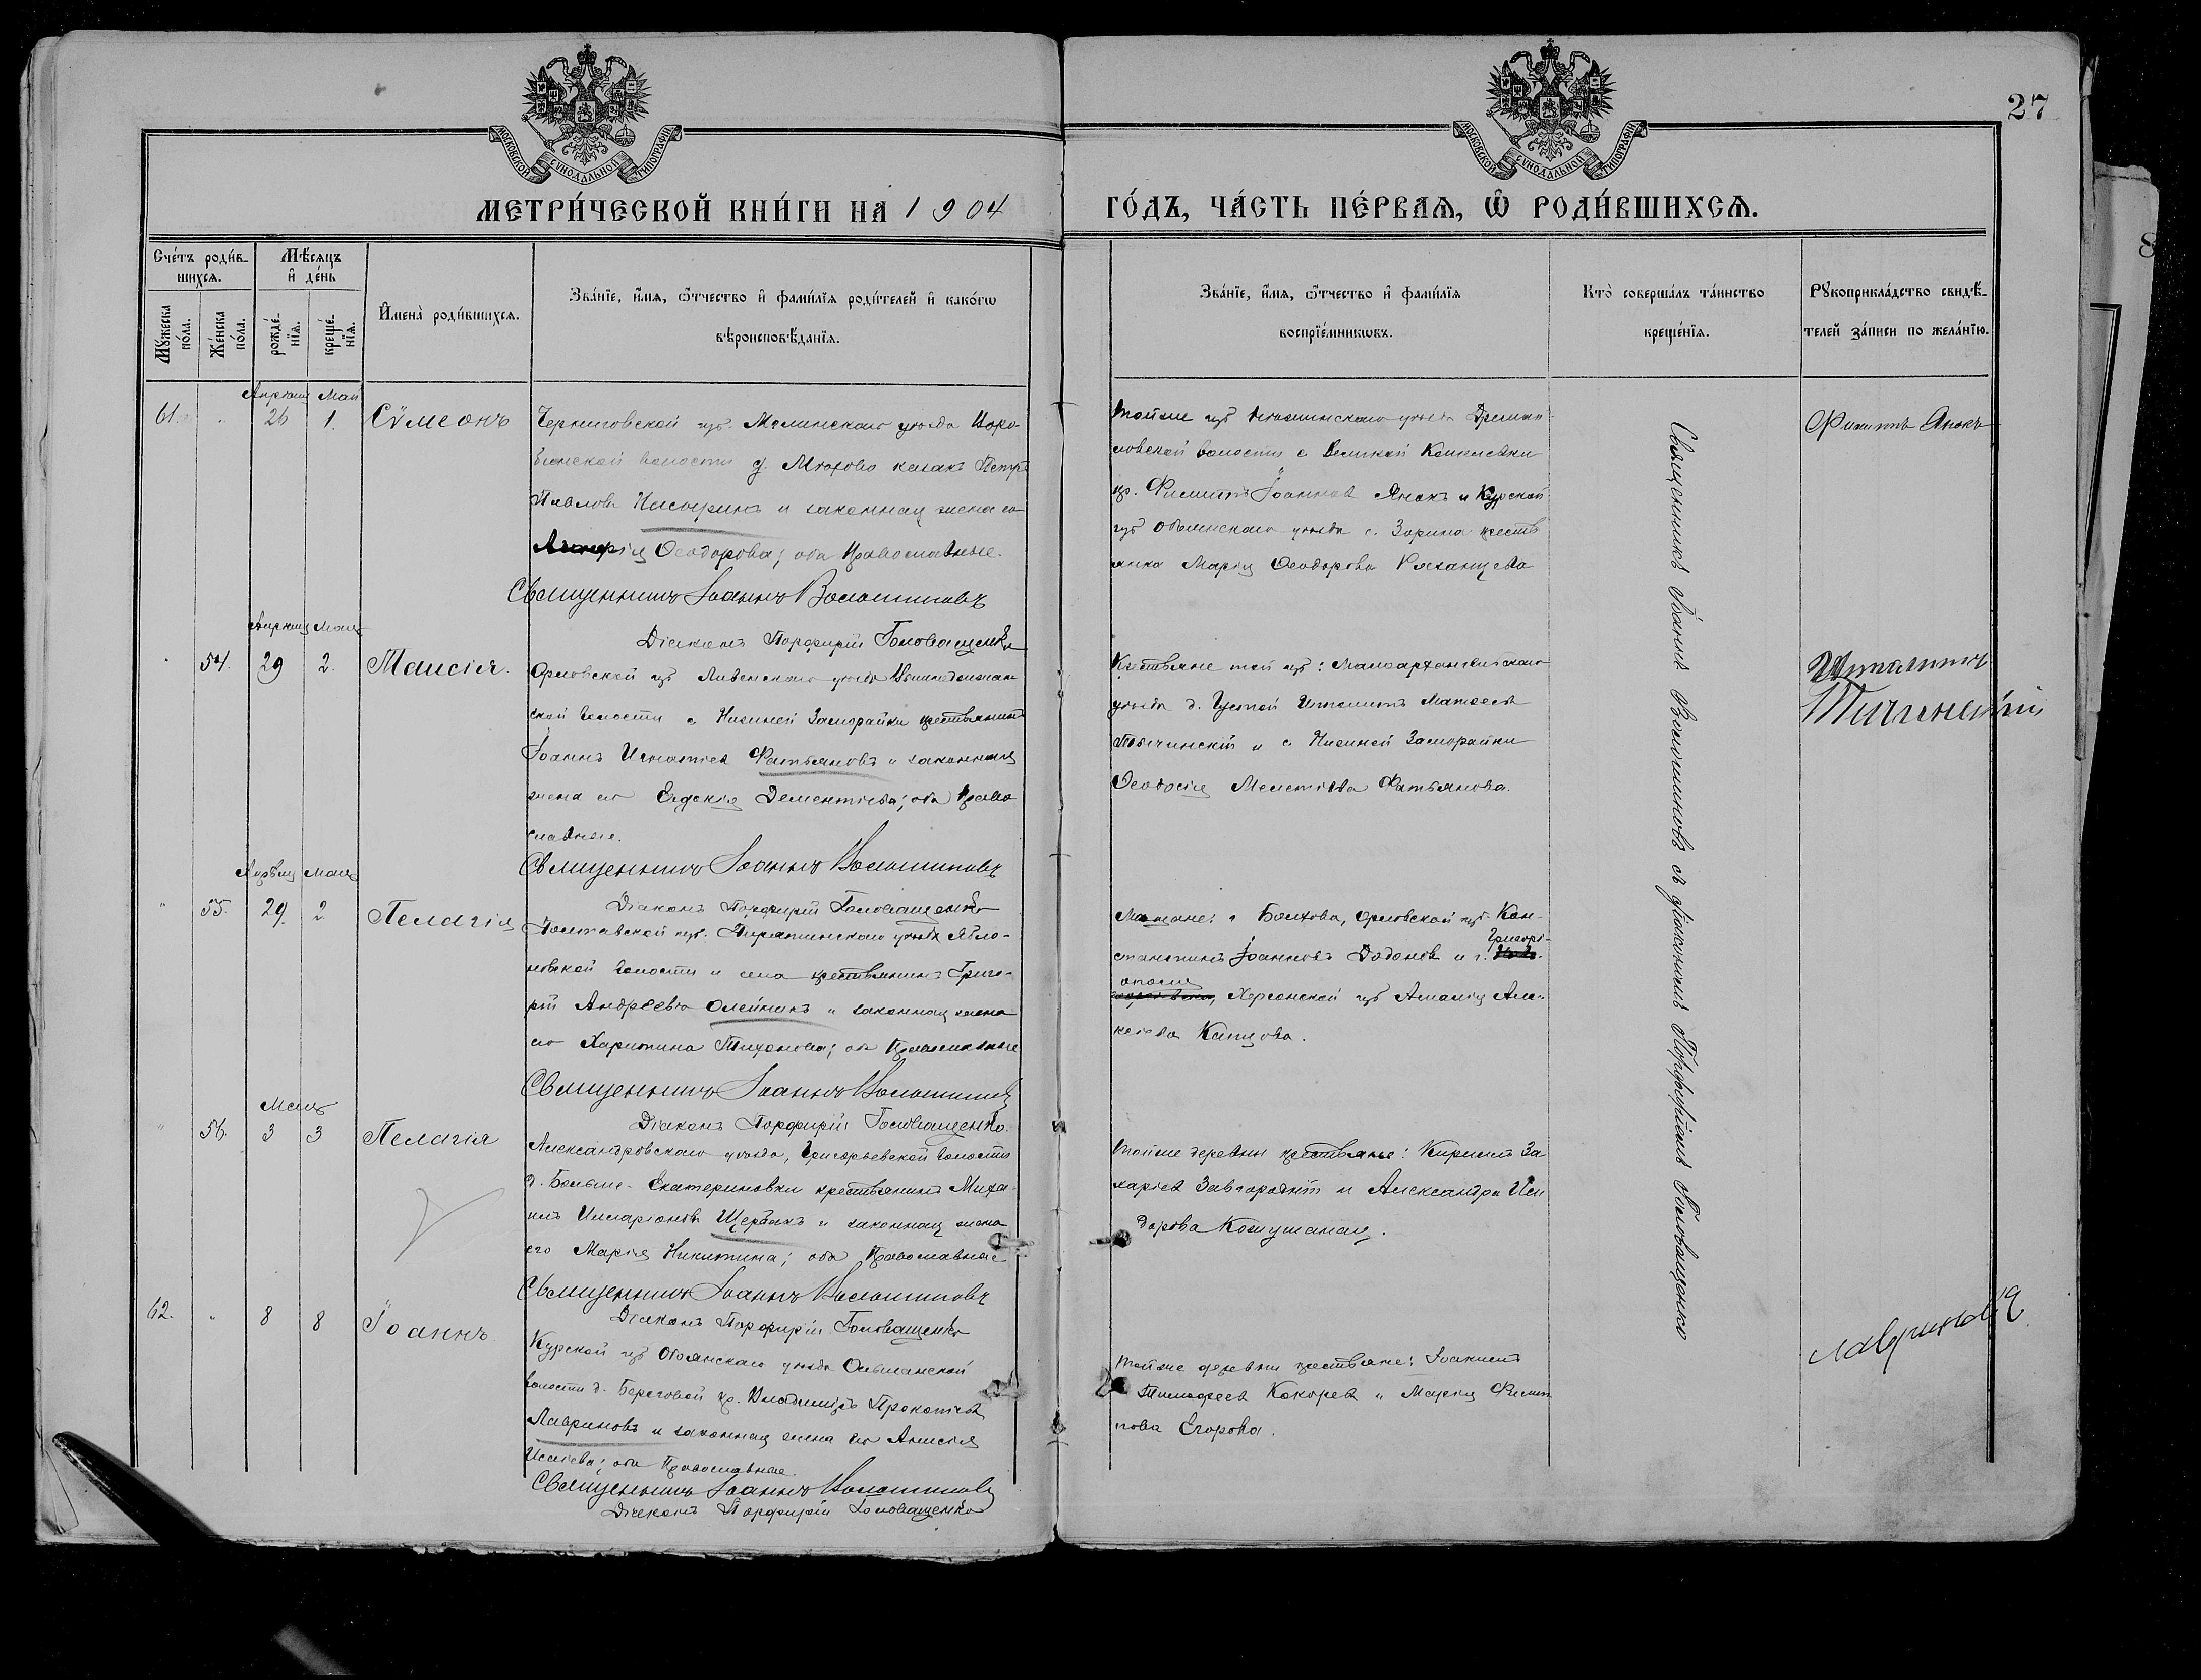 27
МОСКОВСКОЙ СѴНОДАЛЬНОЙ ТИПОГРАФІИ
МОСКОВСКОЙ СѴНОДАЛЬНОЙ ТИПОГРАФІИ
МЕТРИ́ЧЕСКОЙ КНИ́ГИ НА 1904
ГО́ДЪ, ЧА́СТЬ ПЕ́РВАѦ, Ѽ РОДИ́ВШИХСѦ.
Сче́тъ роди́в-
шихся.
Мꙋжеска
по́ла.
Же́нска
по́ла.
Мѣ́сяцъ
и҆ де́нь
рожде́-
нїя.
креще́-
нїя.
И҆мена̀ роди́вшихся.
Зва́нїе, и҆́мя, ѻ҆́тчество и҆ фами́лїя роди́телей и҆ како́гѡ
вѣроисповѣ́данїя.
Зва́нїе, и҆́мя, ѻ҆́тчество и҆ фами́лїя
воспрїе́мникѡвъ.
Кто̀ соверша́лъ та́инство
креще́нїя.
Рꙋкоприкла́дство свидѣ́-
телей за́писи по жела́нїю.
Апрѣля Мая
61. 26 1. Сѵмеонъ
Черниговской губ. Мглинскаго уѣзда
волости д. Мтхово казакъ Петръ
Павловъ и законная жена его
Ѳеодорова; оба Православные.
Священникъ Іоаннъ Волошиновъ
Діаконъ Порфирій Головащенко
уѣзда
ловской волости с. Великой Кошелевки
кр. Филиппъ Іоанновъ Янокъ и Курской
губ Обоянскаго уѣзда с. Зорина кресть
янка Марія Ѳеодорова Рязанцева
Филиппъ Янокъ
Апрѣля Мая
54. 29 2. Таисія.
Орловской губ Ливенскаго уѣзда
ской волости с. Нижней Заморайки крестьянинъ
Іоаннъ Игнатіевъ Фатьяновъ и законная
жена его Евдокія Дементіева; оба Право
славные.
Священникъ Іоаннъ Волошиновъ
Діаконъ Порфирій Головащенко
Крестьяне той губ: Малоархангельскаго
уѣзда д. Густой Ипполитъ Матѳеевъ
и с Нижней Заморайки
Ѳеодосія Мелетіева Фатьянова.
Ипполитъ
Апрѣля Мая
55. 29. 2 Пелагія
Полтавской губ. Пирятинскаго уѣзда Ябло-
новской волости и села крестьянинъ Григо-
рій Андреевъ Олейникъ и законная жена
его Харитина Тихонова; оба Православные
Священникъ Іоаннъ Волошиновъ
Діаконъ Порфирій Головащенко.
Мѣщане: г Болхова, Орловской губ. Кон-
стантинъ Іоанновъ Додоновъ и г. Григорі-
ополя, Херсонской губ Але-
ксіева Капцова.
Мая
56. 3 3 Пелагія
Александровскаго уѣзда, Григорьевской волости
д. Больше-Екатериновки крестьянинъ Миха-
илъ Иларіоновъ Щербакъ и законная жена
его Марія Никитина; оба Православные
Священникъ Іоаннъ Волошиновъ
Діаконъ Порфирій Головащенко
Тойже деревни крестьяне: Кириллъ За
харіевъ Завгородній и Александра Иси
дорова
62. 8 8 Іоаннъ
Курской губ Обоянскаго уѣзда Ольшанской
волости д. Береговой кр. Владиміръ Прокопіевъ
Лавриновъ и законная жена его Анисія
Исаіева; оба Православные.
Священникъ Іоаннъ Волошиновъ
Діаконъ Порфирій Головащенко
Тойже деревни крестьяне: Іоакимъ
Тимоѳеевъ Кокоревъ и Марія Филип
пова Егорова.
Священникъ Іоаннъ Волошиновъ съ діакономъ Порфиріемъ Головащенко